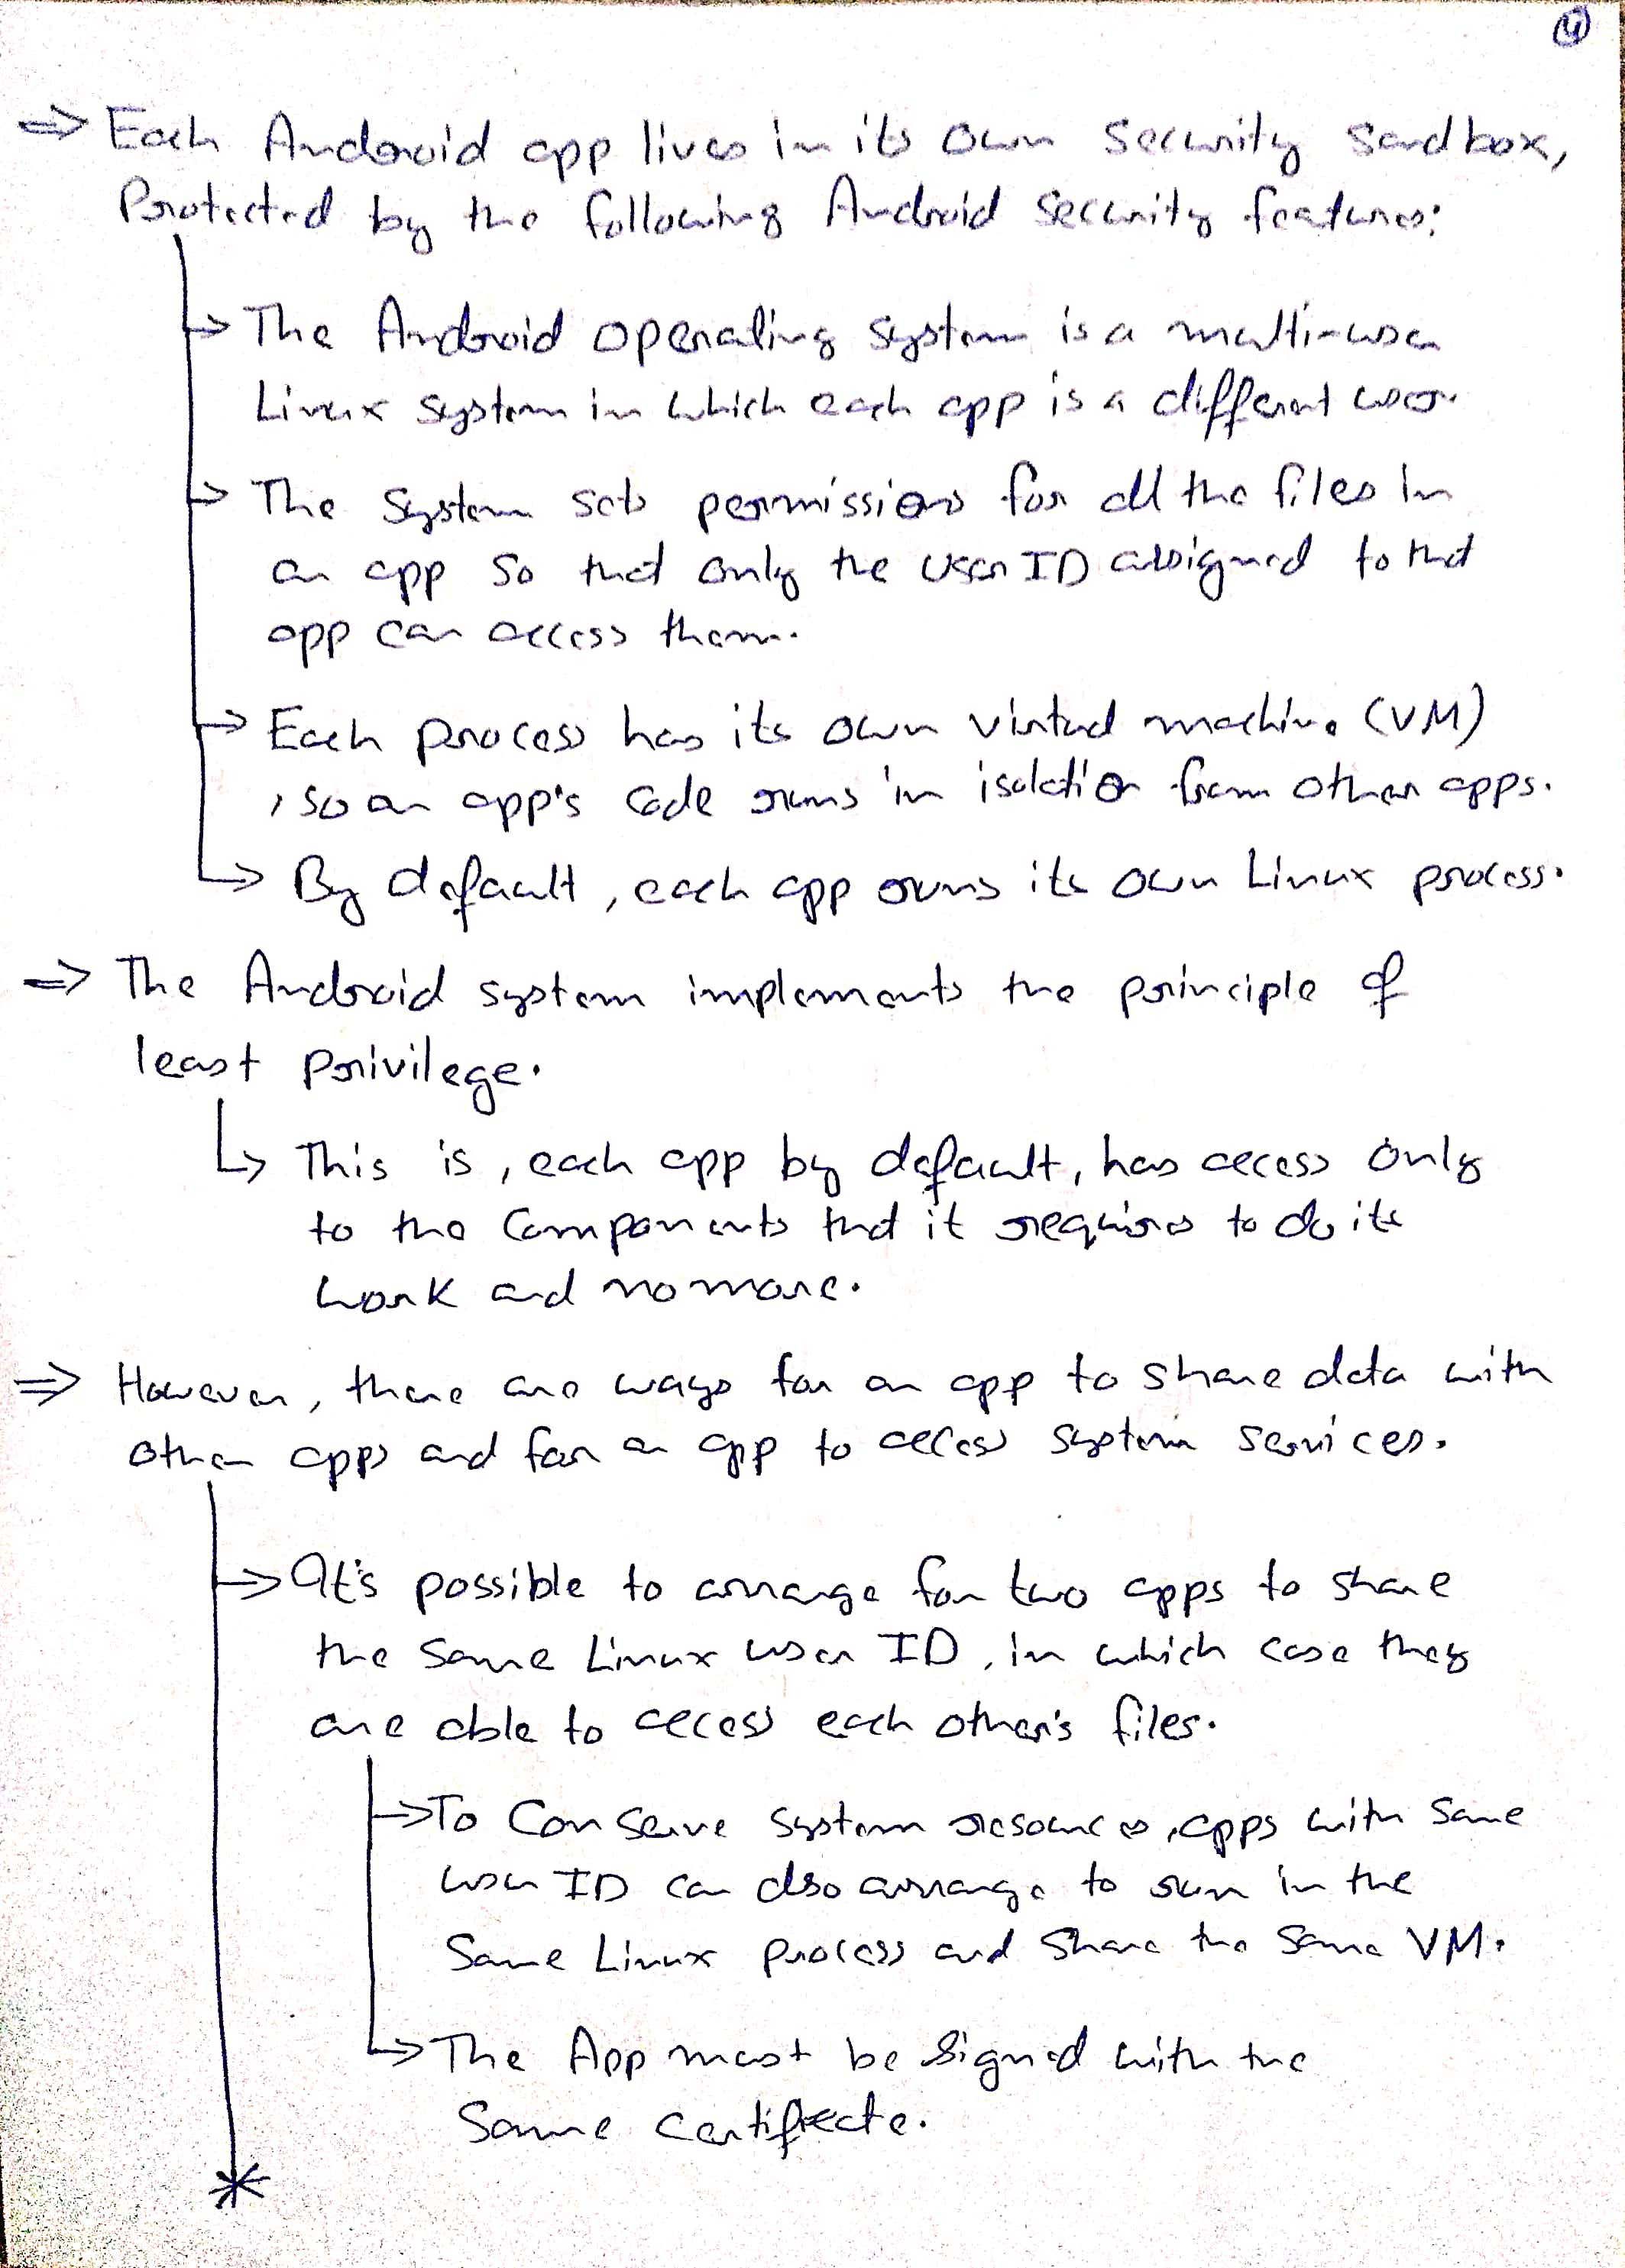 ④
⇒ Each Android app lives in its own security sandbox,
Protected by the following Android security features:
→ The Android operating system is a multi-user
Linux system in which each app is a different user.
→ The system sets permissions for all the files in
an app so that only the user ID assigned to that
app can access them.
→ Each process has its own virtual machine (VM)
, so an app's code runs in isolation from other apps.
→ By default, each app runs its own Linux process.
⇒ The Android system implements the principle of
least privilege.
↳ This is, each app by default, has access only
to the components that it requires to do its
work and no more.
⇒ However, there are ways for an app to share data with
other apps and for an app to access system services.
→ It's possible to arrange for two apps to share
the same Linux user ID, in which case they
are able to access each other's files.
→ To conserve system resources, apps with same
user ID can also arrange to run in the
same Linux process and share the same VM.
→ The App must be signed with the
same certificate.
*